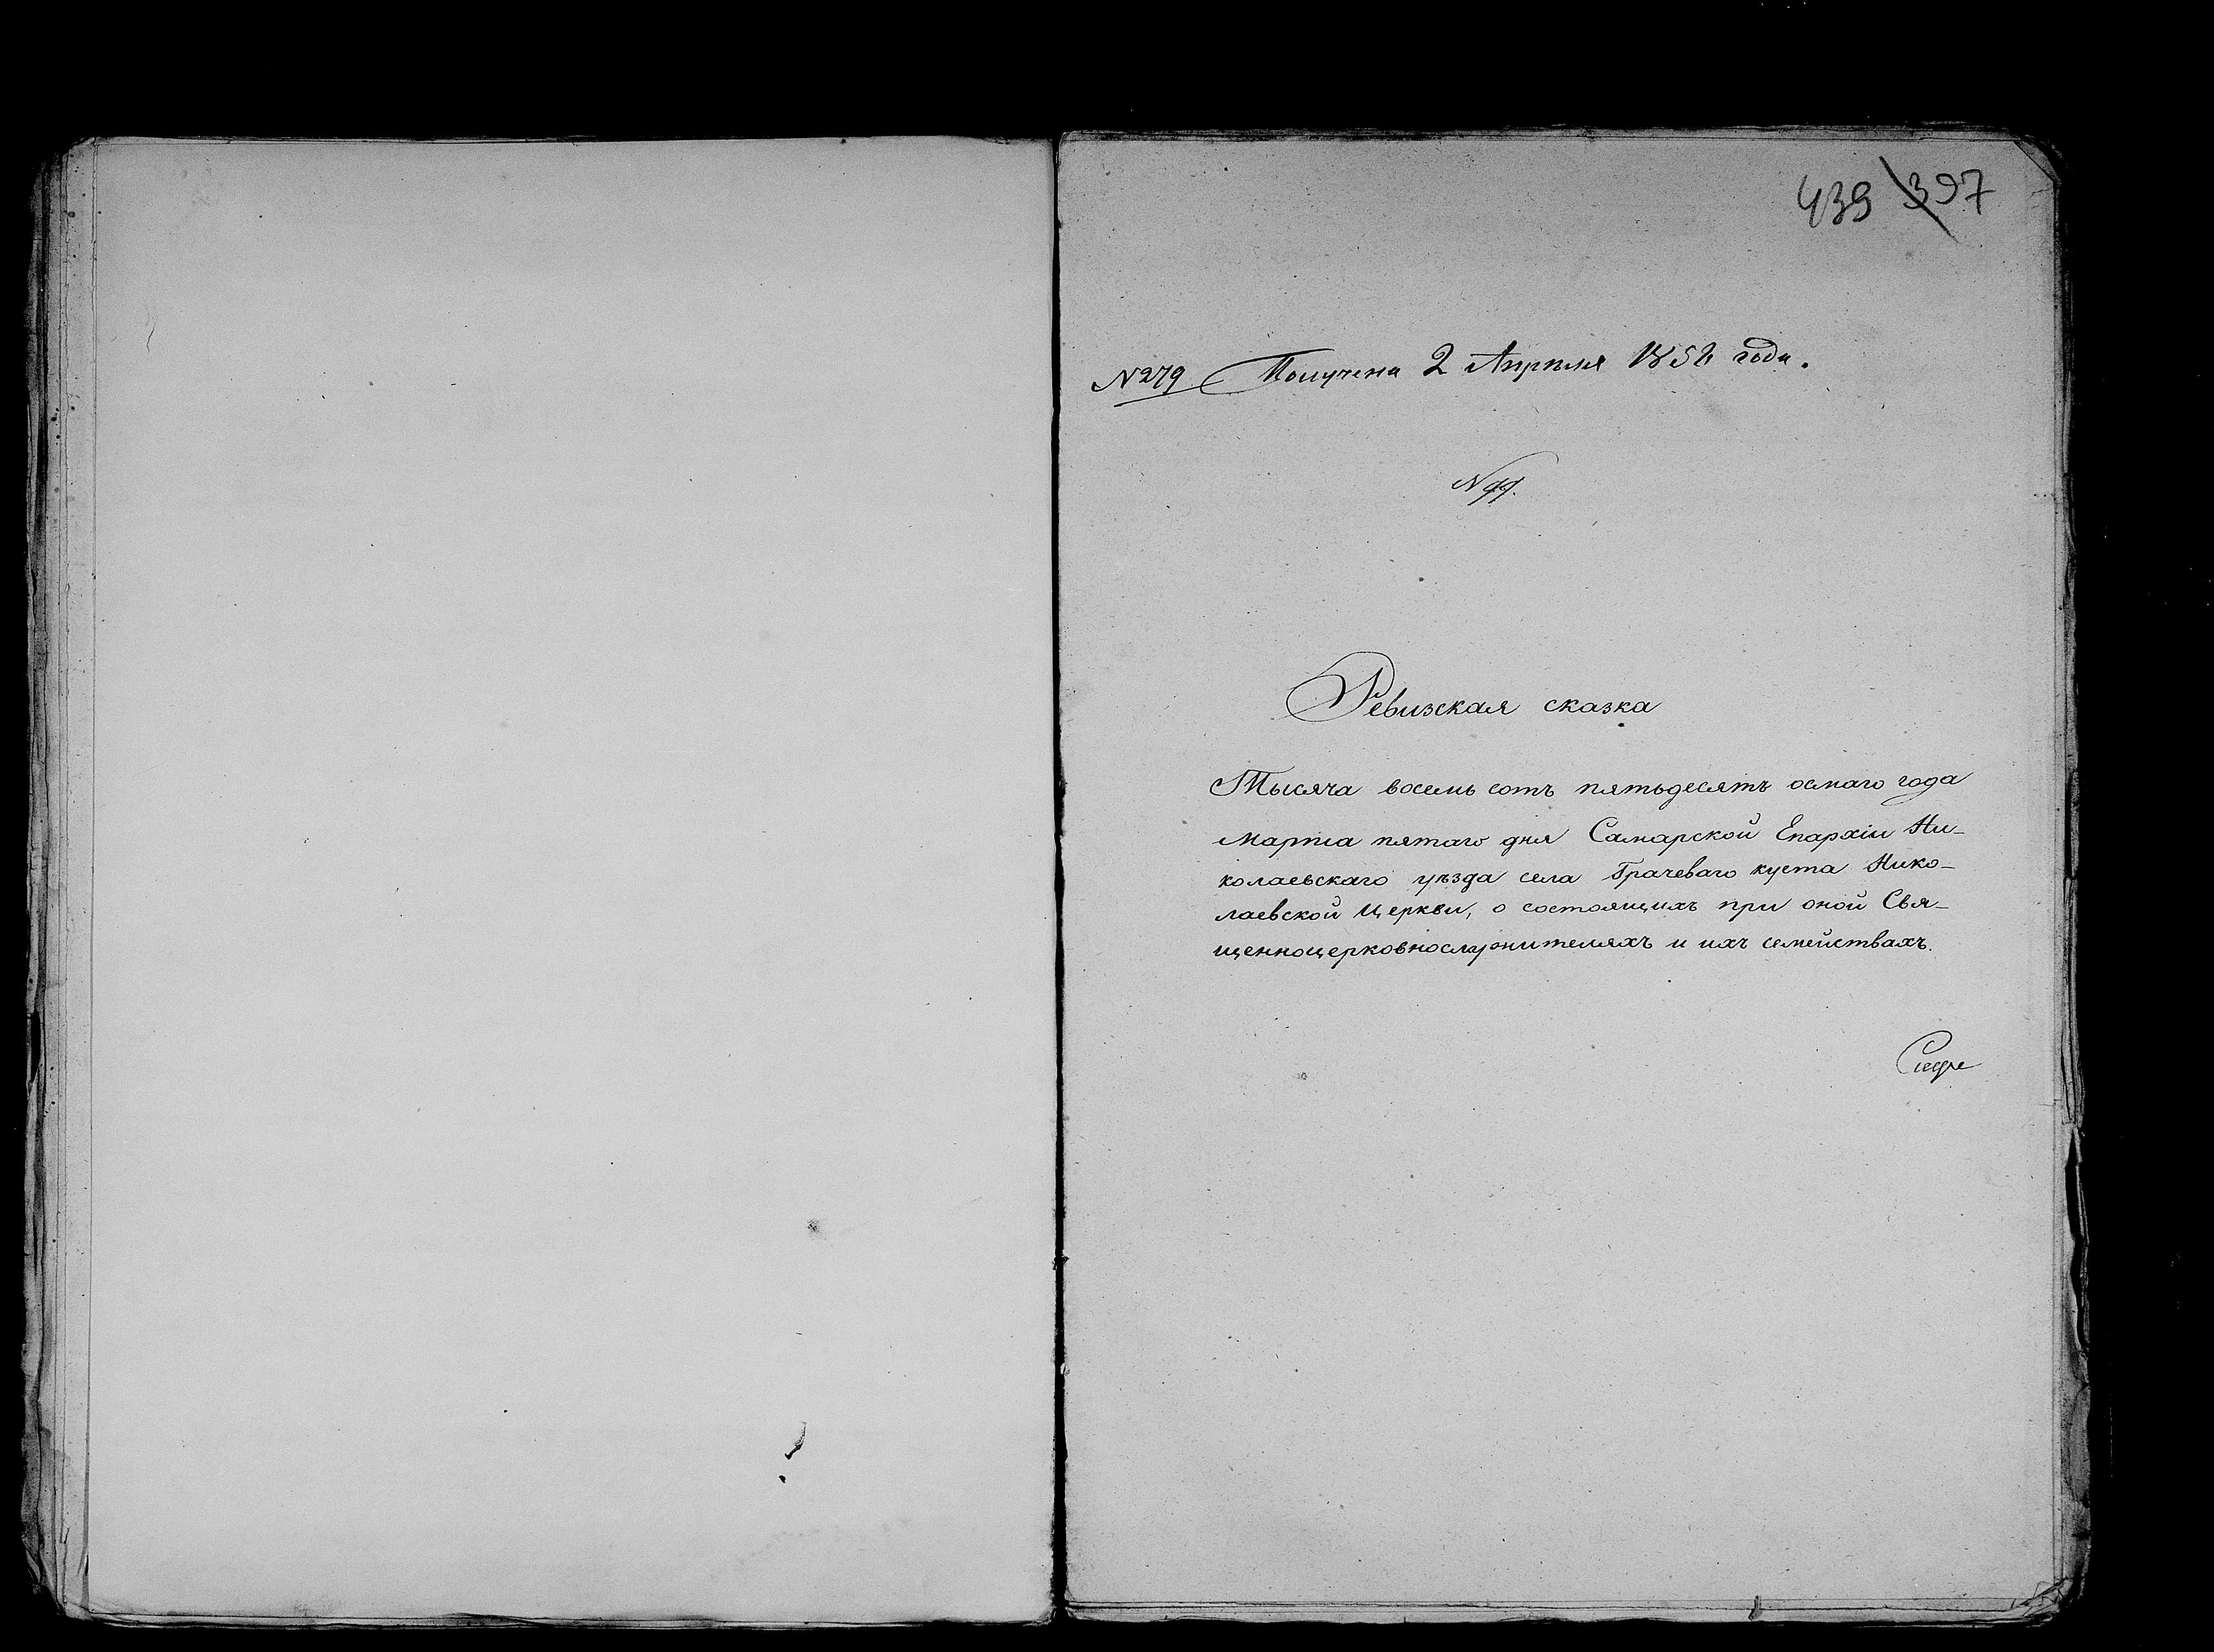 439 397
№ 279 Получена 2 Апрѣля 1858 года.
№ 99.
Ревизская сказка
Тысяча восемь сотъ пятьдесятъ осмаго года
Марта пятаго дня Самарской Епархіи Ни-
колаевскаго уѣзда села Грачеваго куста Нико-
лаевской Церкви, о состоящихъ при оной Свя-
щенноцерковнослужителяхъ и ихъ семействахъ.